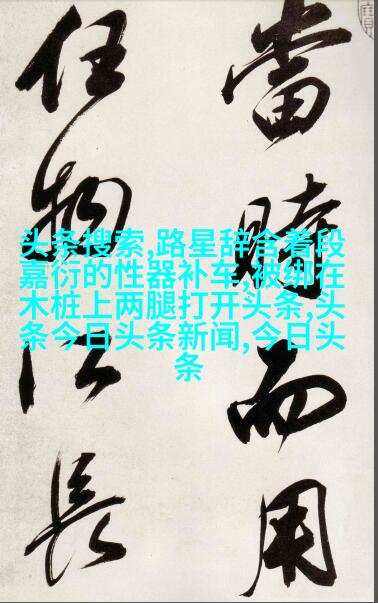 當時而用
任物以長
头条搜索,路星辞含着段
嘉衍的性器补车,被绑在
木桩上两腿打开头条,头
条今日头条新闻,今日头
条